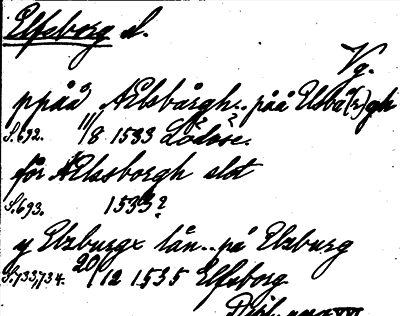 Elfsborg sl.
Vg.
ppåå Aelsbårgh.. påå Elsbå(r)gh
S.692. 11/8 1533 Lödöse.
för Ælvsborgh slot
S.693. 1533?
y Elzburgx län.. på Elzburg
S.733,734. 20/12 1535 Elfsborg